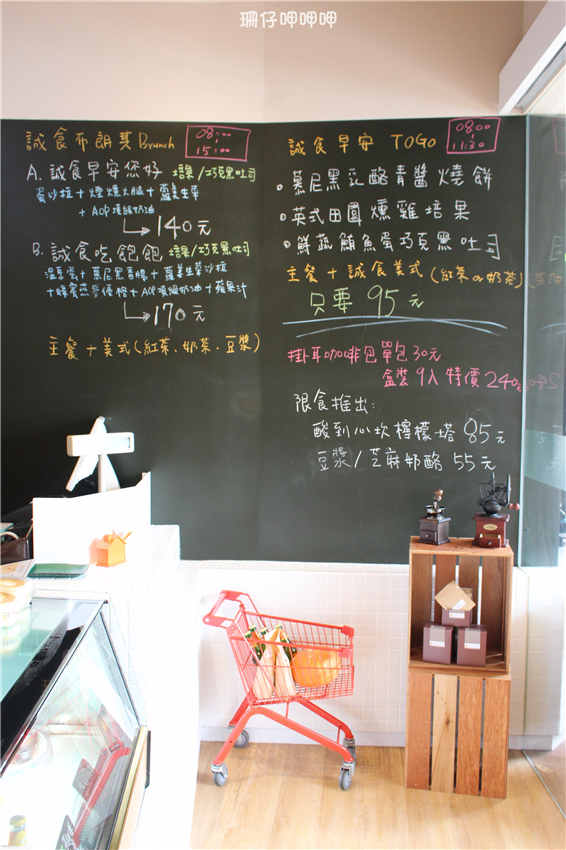 珊仔呷呷呷
誠食布朗其Brunch 08:00 15:00
A. 誠食早安您好 法課/巧克黑吐司
蛋沙拉+煙燻火腿+蘿美生菜
+AOP頂級奶油
140元
B. 誠食吃飽飽 法課/巧克黑吐司
溫泉蛋+慕尼黑香腸+蘿美生菜沙拉
+蜂蜜燕麥優格+AOP頂級奶油+蘋果汁
170元
主餐+美式(紅茶、奶茶、豆漿)
誠食早安 TOGO 08:00 11:30
慕尼黑乳酪青醬燒餅
英式田園燻雞培果
鮮蔬鮪魚蛋巧克黑吐司
主餐+誠食美式(紅茶or奶茶)
只要 95元
掛耳咖啡包單包30元
盒裝9入 特價240元
限食推出:
酸到心坎檸檬塔 85元
豆漿/芝麻奶酪 55元